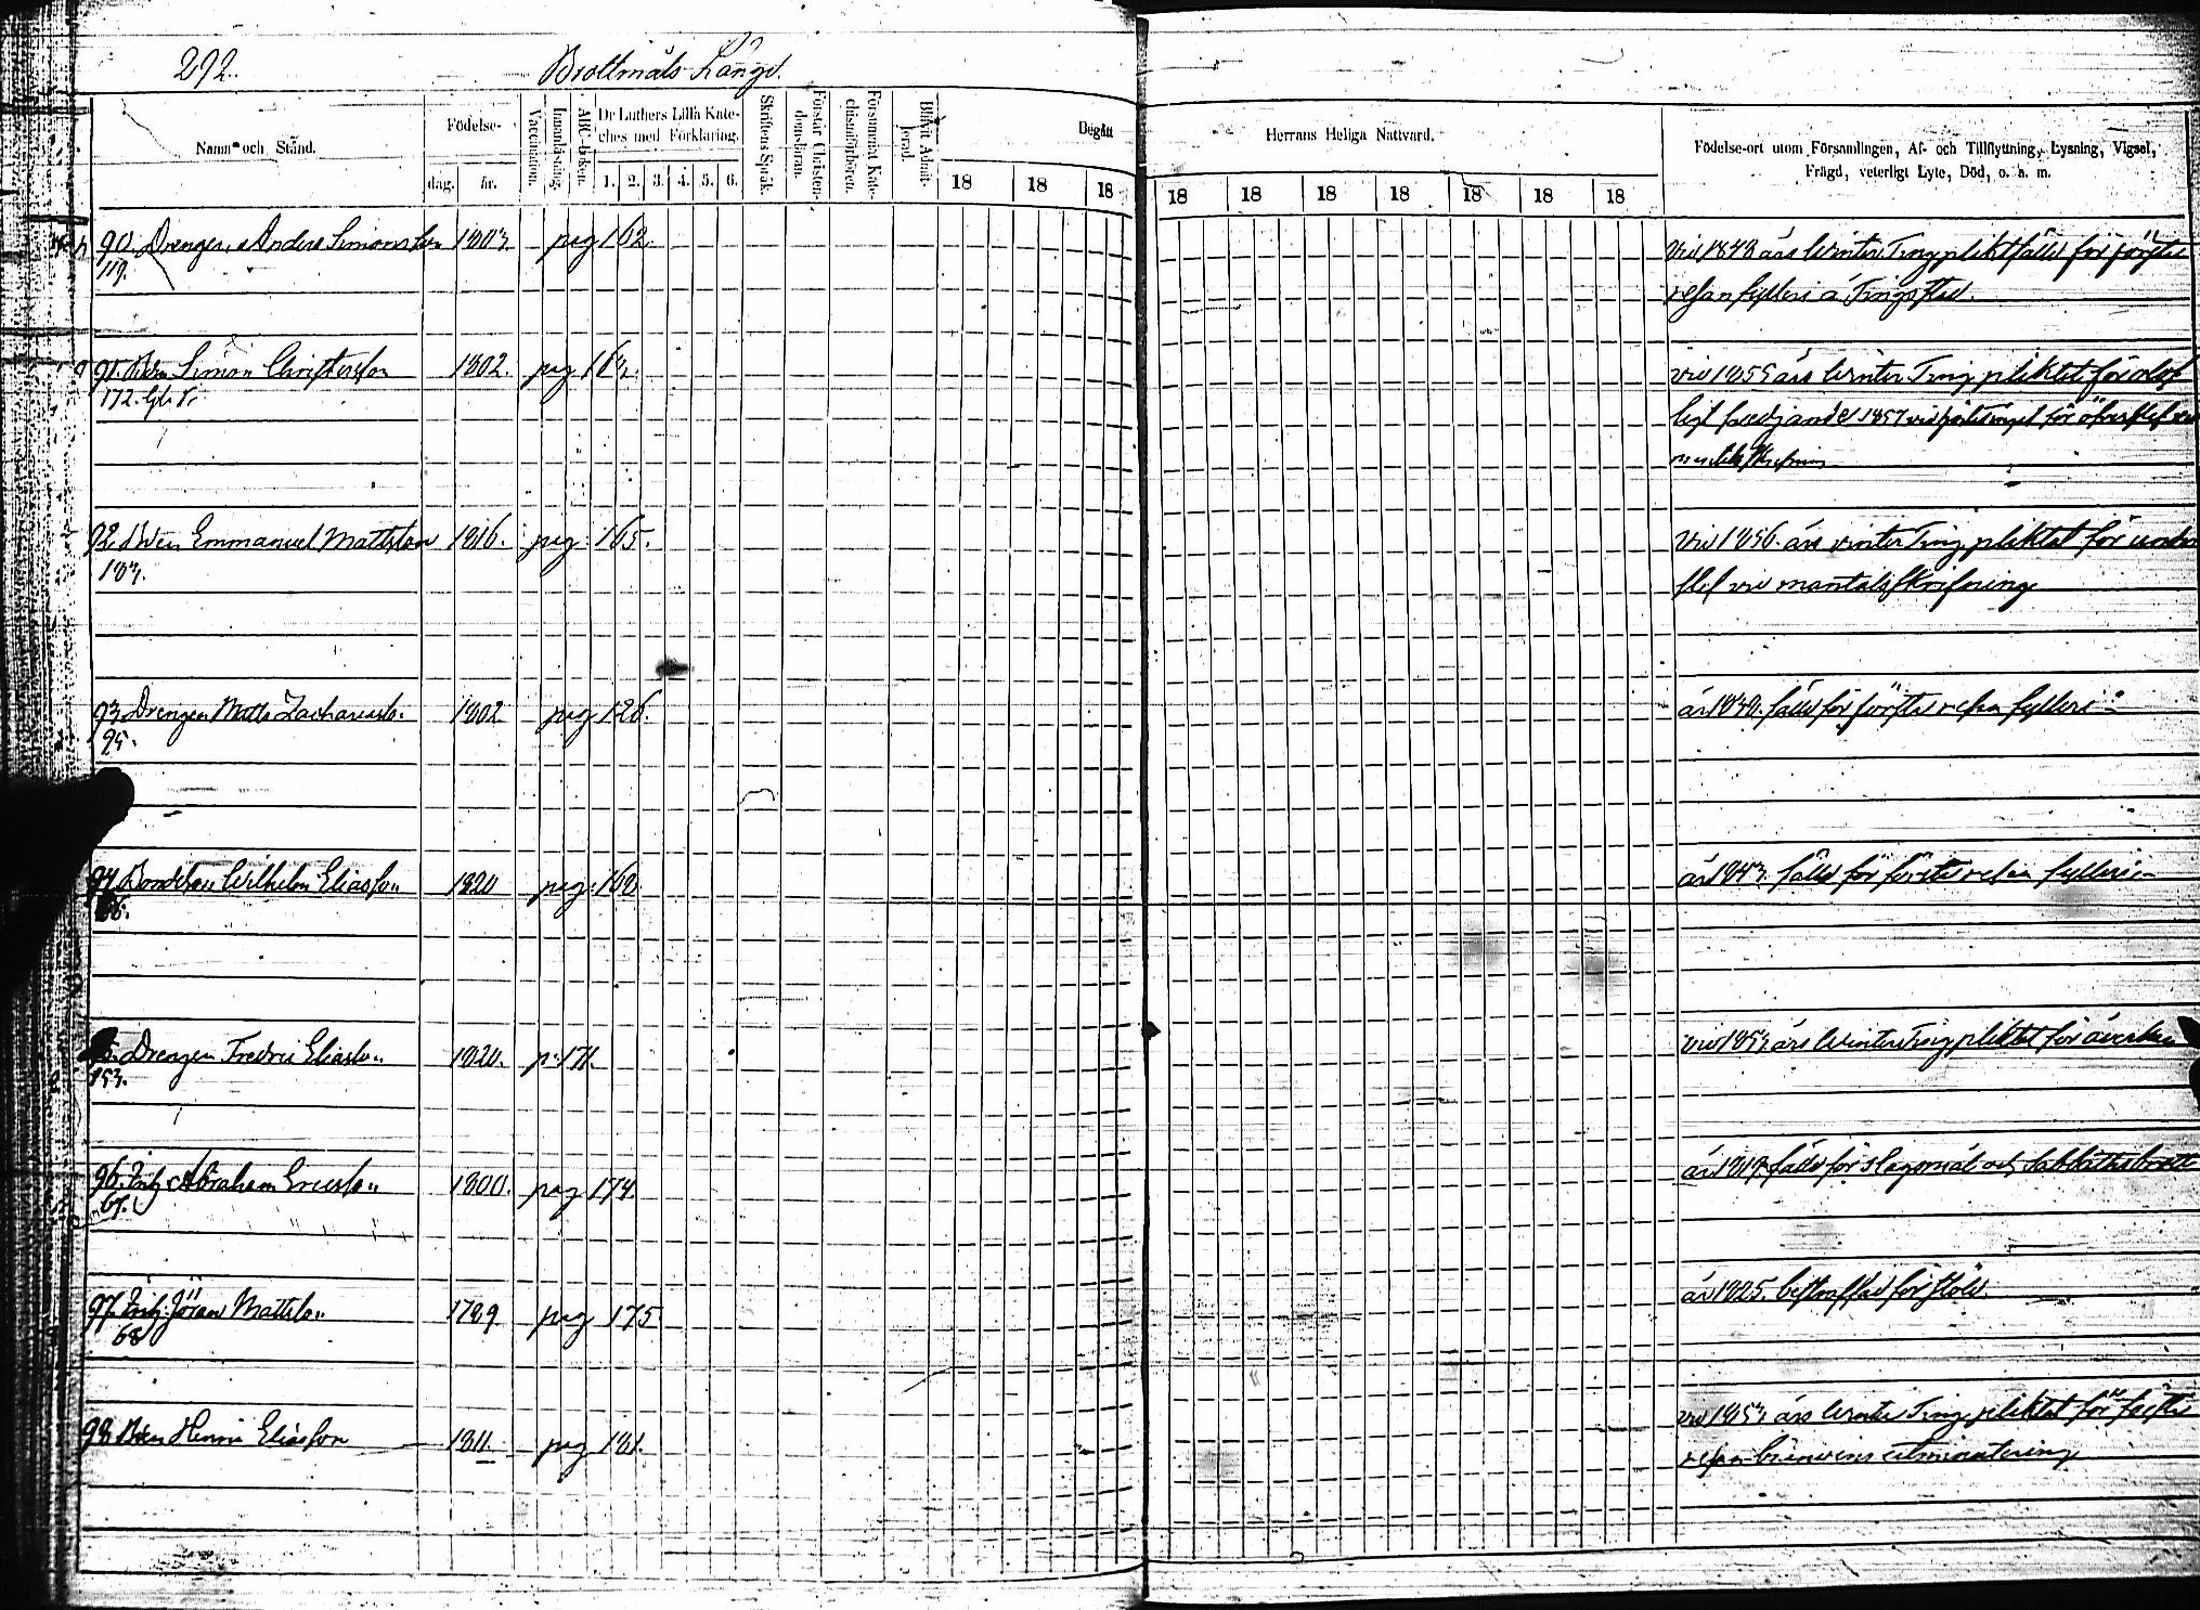 292.
Brottmåls Längd.
Namn och Stånd.
Födelse-
dag. år.
Vaccination.
Innanläsning.
ABC-boken.
Dr Luthers Lilla Kate-
ches med Förklaring.
1. 2. 3. 4. 5. 6.
Skriftens Språk.
Förstår Christen-
domsläran.
Försummat Kate-
chismiförhören.
Blifvit Admit-
terad.
Begått
18 18 18
Herrans Heliga Nattvard.
18 18 18 18 18 18 18
Födelse-ort utom Församlingen, Af- och Tillflyttning, Lysning, Vigsel,
Frägd, veterligt Lyte, Död, o. a. m.
90. Drengen Anders Simonsson 1803 pag 162 vid 1848 års Winter Ting pliktfälld för första
119. resan fylleri å Tingsstad.
91. Simon Christersson 1802. pag 163. vid 1855 års Winter Ting pliktat för olof
172. ligt svedjande 1857 vid för
92. Emmanuel Mattsson 1816. pag 165. vid 1856 års vinter Ting pliktat för under
183. slef vid mantalsskrifning
93. Drengen Matts Zachariass. 1802 pag 126. år 1840. fälld för första resan fylleri
95.
94. Bondeson Wilhelm Eliasson 1820 pag: 168 år 1843. fälld för första resan fylleri
Drengen Fredric Eliasson 1820. p. 171. vid 1853 års Winter Ting pliktat för åverkan
153.
96. Abraham Ericsson 1800. pag 174. fälld för slagsmål och sabbathsbrott
67.
97. Jöran Mattsson 1789 pag 175. år 1825. bestraffad för stöld.
68
98 Henric Eliasson 1811. pag 181. vid 1853 års Winter Ting pliktat för första
resan bränvins utminutering